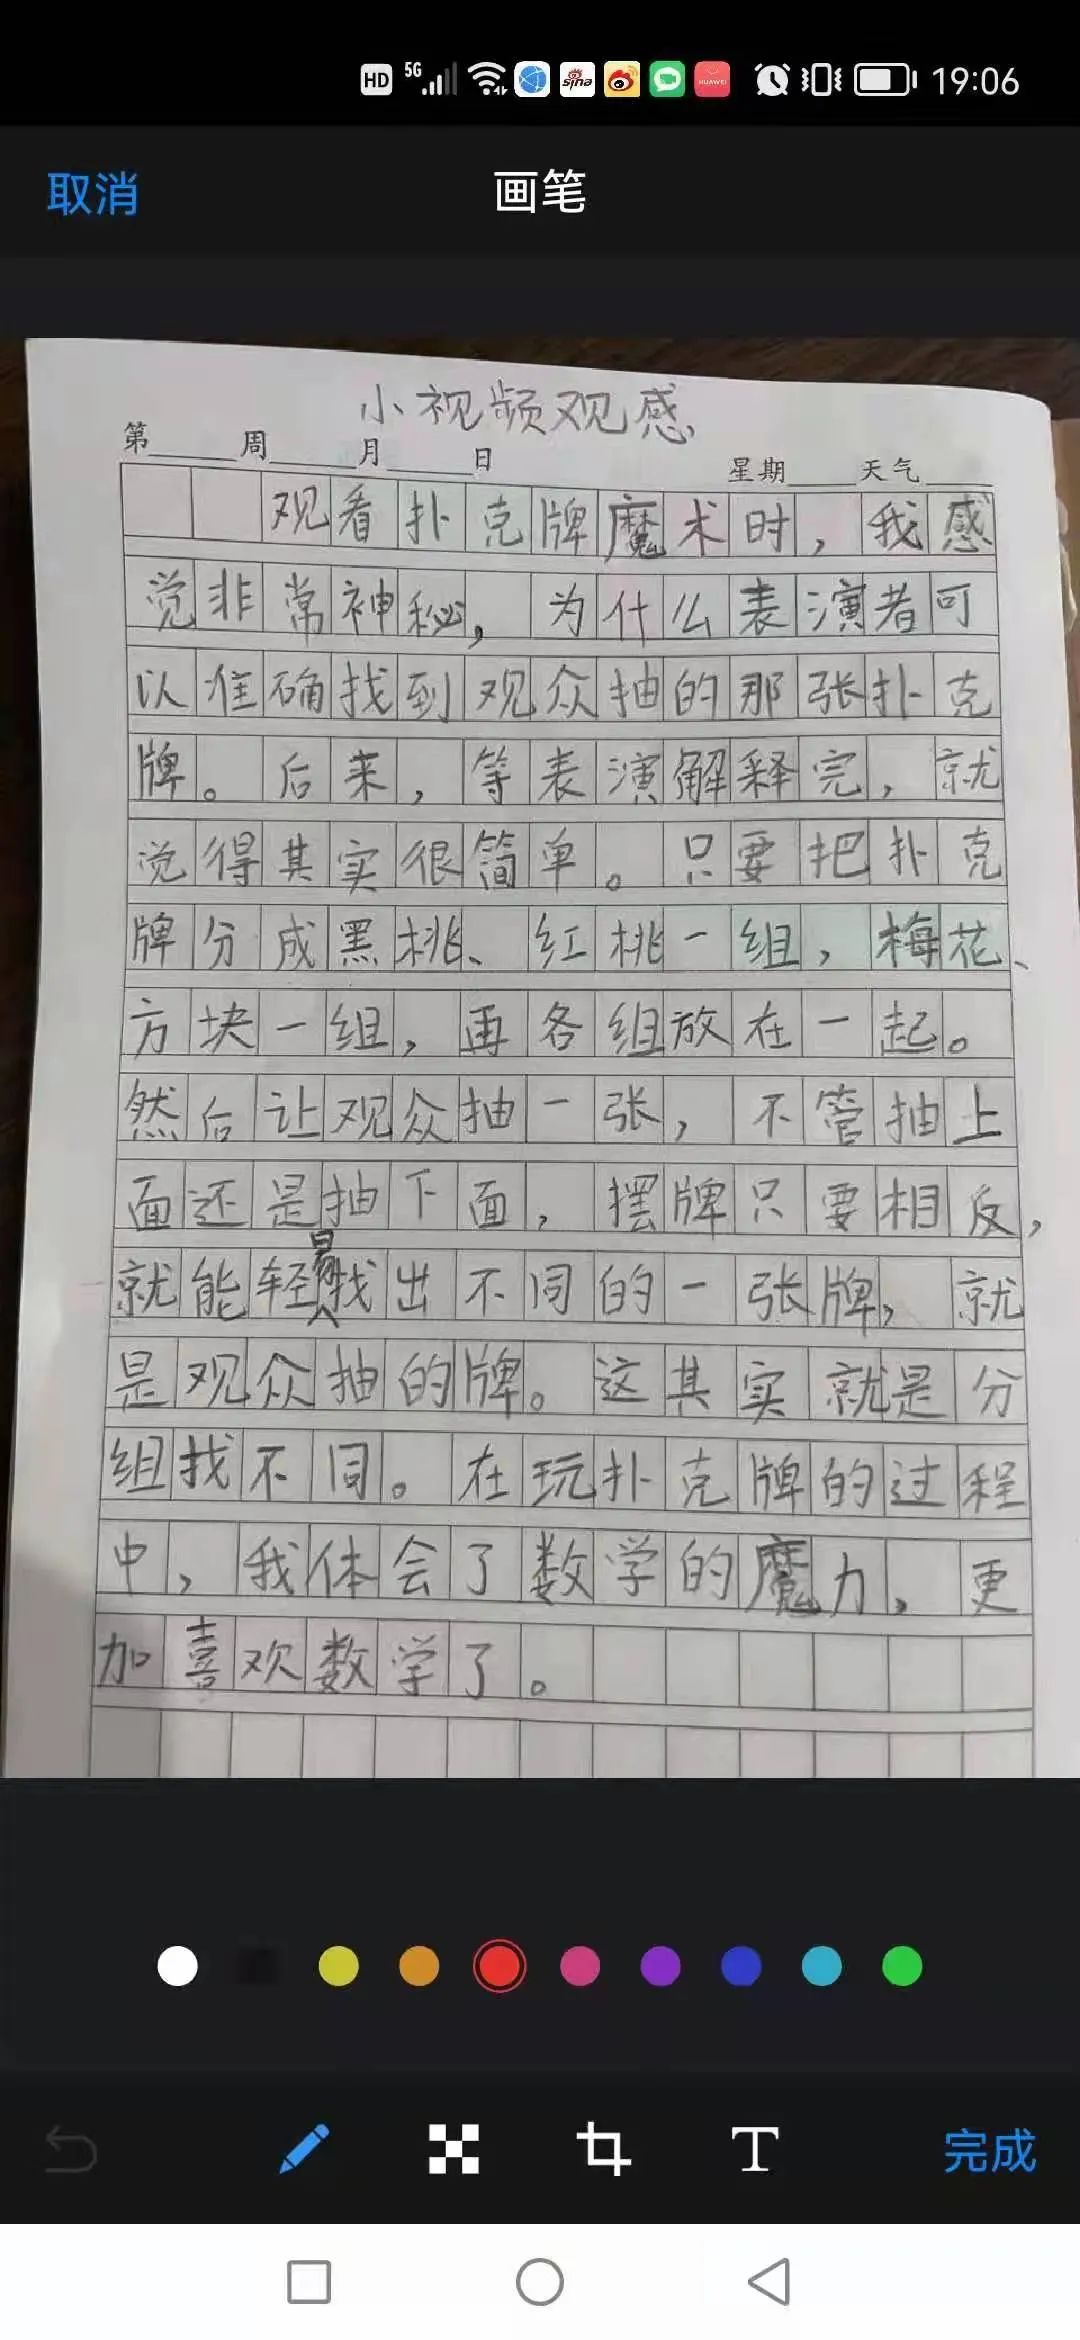 HD 5G sina HUAWEI 19:06
取消 画笔
小视频观感
第 周 月 日 星期 天气
观看扑克牌魔术时，我感
觉非常神秘，为什么表演者可
以准确找到观众抽的那张扑克
牌。后来，等表演解释完，就
觉得其实很简单。只要把扑克
牌分成黑桃、红桃一组，梅花、
方块一组，再各组放在一起。
然后让观众抽一张，不管抽上
面还是抽下面，摆牌只要相反，
就能轻易找出不同的一张牌，就
是观众抽的牌。这其实就是分
组找不同。在玩扑克牌的过程
中，我体会了数学的魔力，更
加喜欢数学了。
T 完成